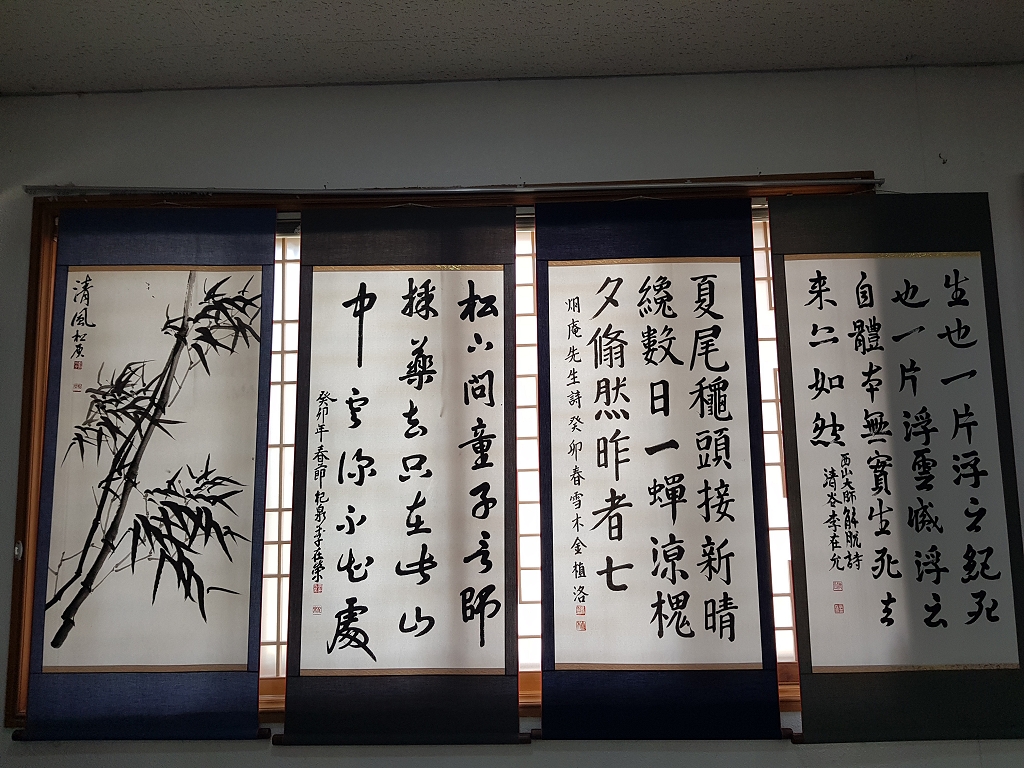 生也一片浮云起死
也一片浮雲滅浮云
自體本無實生死去
来亦如然
西山大師解脫詩
清岑李在允
夏尾穐頭接新晴
纔數日一蟬凉槐
夕翛然昨者七
炯庵先生詩癸卯春雪木金植洛
松下問童子言師
採藥去只在此山
中雲深不知處
癸卯年春節杞泉李在榮
清風松原